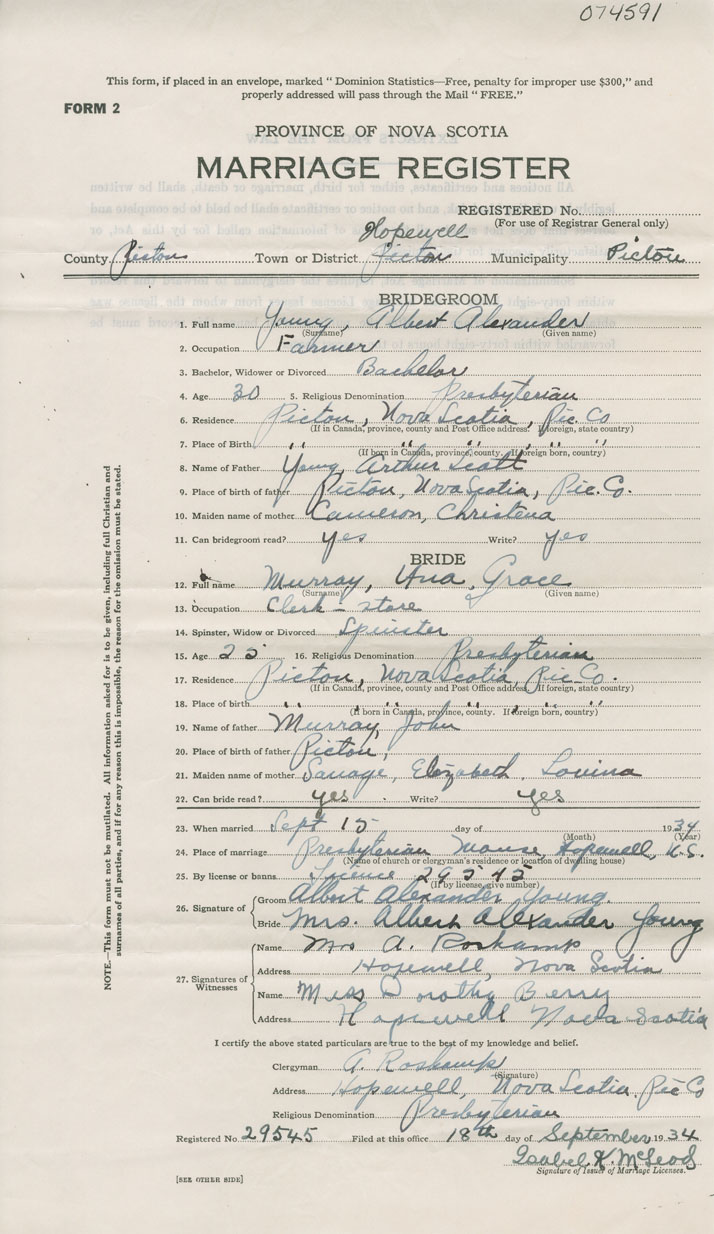 074591
This form, if placed in an envelope, marked “ Dominion Statistics—Free, penalty for improper use $300,” and
properly addressed will pass through the Mail “ FREE.”
FORM 2
PROVINCE OF NOVA SCOTIA
MARRIAGE REGISTER
REGISTERED No.
(For use of Registrar General only)
Hopewell
County Pictou Town or District Pictou Municipality Pictou
BRIDEGROOM
1. Full name Young, Albert Alexander
(Surname) (Given name)
2. Occupation Farmer
3. Bachelor, Widower or Divorced Bachelor
4. Age 30 5. Religious Denomination Presbyterian
6. Residence Pictou, Nova Scotia, Pic. Co
(If in Canada, province, county and Post Office address. If foreign, state country)
7. Place of Birth " " " " "
(If born in Canada, province, county. If foreign born, country)
8. Name of Father Young, Arthur Scott
9. Place of birth of father Pictou, Nova Scotia, Pic. Co.
10. Maiden name of mother Cameron, Christena
11. Can bridegroom read? yes Write? yes
BRIDE
12. Full name Murray, Una, Grace
(Surname) (Given name)
13. Occupation Clerk - store
14. Spinster, Widow or Divorced Spinster
15. Age 25 16. Religious Denomination Presbyterian
17. Residence Pictou, Nova Scotia, Pic. Co.
(If in Canada, province, county and Post Office address. If foreign, state country)
18. Place of birth " " " " "
(If born in Canada, province, county. If foreign born, country)
19. Name of father Murray, John
20. Place of birth of father Pictou,
21. Maiden name of mother Savage, Elizabeth Lovina
22. Can bride read? yes Write? yes
23. When married Sept 15 day of 1934
(Month) (Year)
24. Place of marriage Presbyterian Manse, Hopewell, N.S.
(Name of church or clergyman's residence or location of dwelling house)
25. By license or banns. Licence 29545
(If by license, give number)
26. Signature of
Groom Albert Alexander Young.
Bride Mrs. Albert Alexander Young
27. Signatures of Witnesses
Name Mrs A. Roskamp
Address Hopewell, Nova Scotia
Name Miss Dorothy Berry
Address Hopewell Nova Scotia
I certify the above stated particulars are true to the best of my knowledge and belief.
Clergyman A. Roskamp
(Signature)
Address Hopewell, Nova Scotia, Pic Co
Religious Denomination Presbyterian
Registered No. 29545 Filed at this office 18th day of September 1934
Isabel K. McLeod
Signature of Issuer of Marriage Licenses.
[SEE OTHER SIDE]
NOTE.—This form must not be mutilated. All information asked for is to be given, including full Christian and
surnames of all parties, and if for any reason this is impossible, the reason for the omission must be stated.